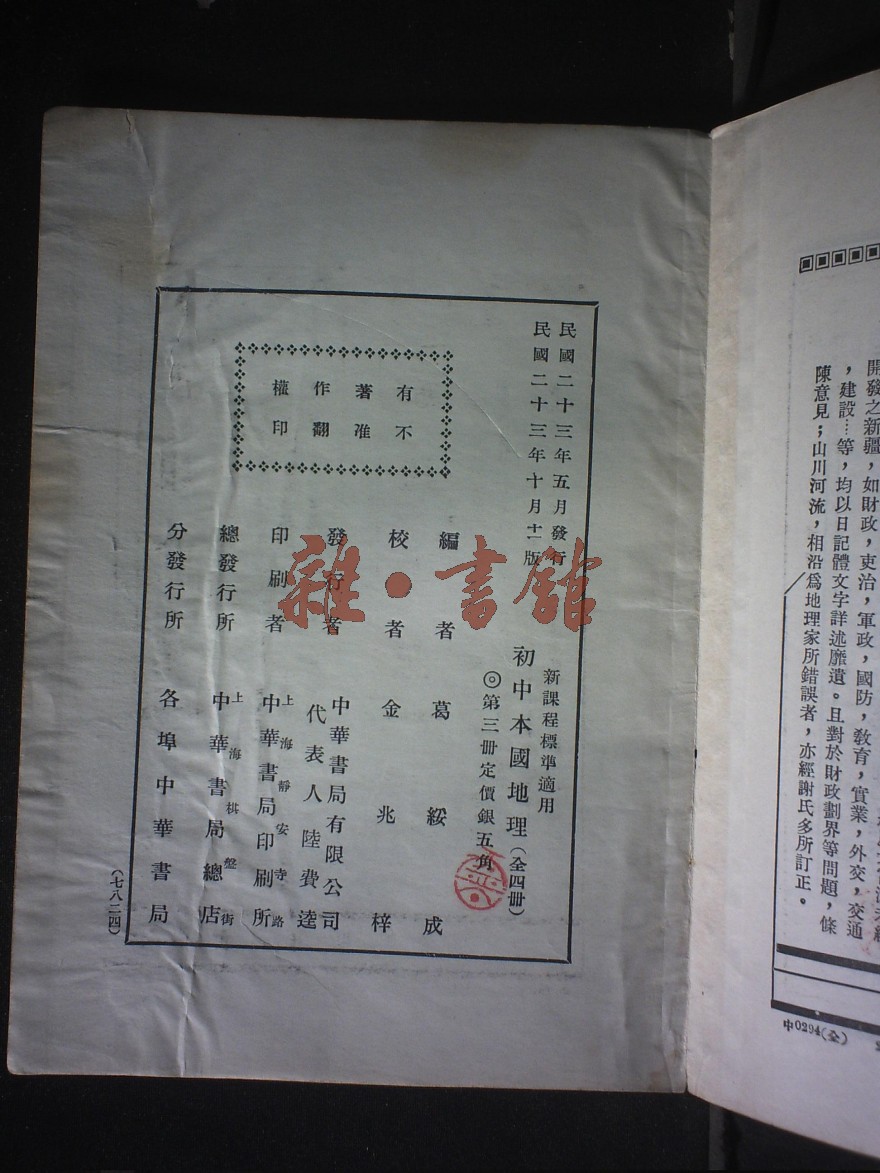 民國二十三年五月發行
民國二十三年十月十一版
新課程標準適用
初中本國地理（全四冊）
◎第三冊定價銀五角
有著作權
不准翻印
編者 葛綏成
校者 金兆梓
發行者 中華書局有限公司
代表人 陸費逵
印刷者 上海靜安寺路
中華書局印刷所
總發行所 上海棋盤街
中華書局總店
分發行所 各埠中華書局
（七八二四）
雜·書館
開發之新疆，如財政，吏治，軍政，國防，教育，實業，外交，交通
，建設…等，均以日記體文字詳述靡遺。且對於財政劃界等問題，條
陳意見；山川河流，相沿爲地理家所錯誤者，亦經謝氏多所訂正。
中0294(全)